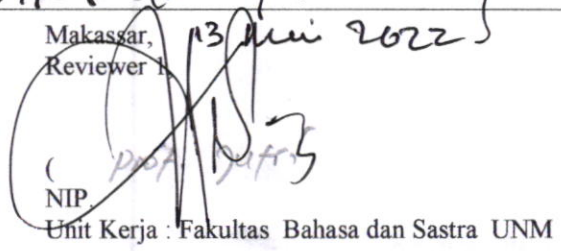 Makassar, 13 Mei 2022
Reviewer 1,
(
NIP.
Unit Kerja : Fakultas Bahasa dan Sastra UNM